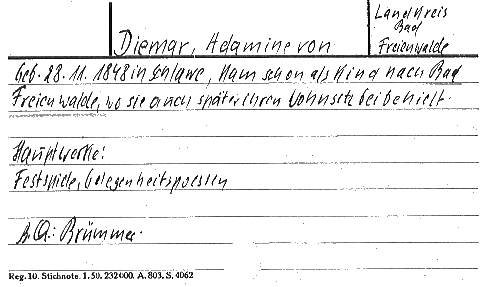 Diemar, Adamine von
Landkreis
Bad
Freienwalde
Geb. 28.11.1848 in Schlawe, kam schon als Kind nach Bad
Freienwalde, wo sie auch später ihren Wohnsitz beibehielt.
Hauptwerke:
Festspiele, Gelegenheitspoesien
A.Q.: Brümmer.
Reg. 10. Stichnote. 1. 50. 232000. A. 803. S. 4062